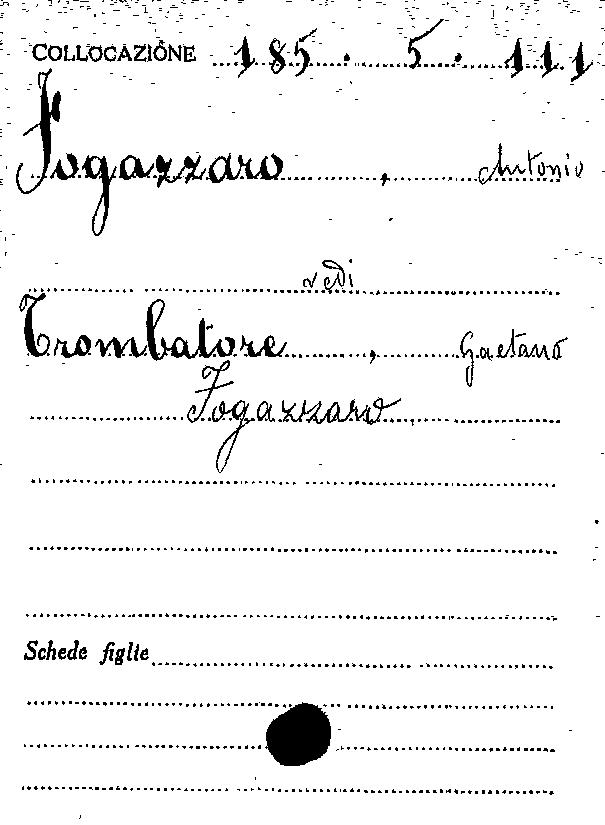 COLLOCAZIONE 185. 5. 111
Fogazzaro, Antonio
vedi
Trombatore, Gaetano
Fogazzaro
Schede figlie